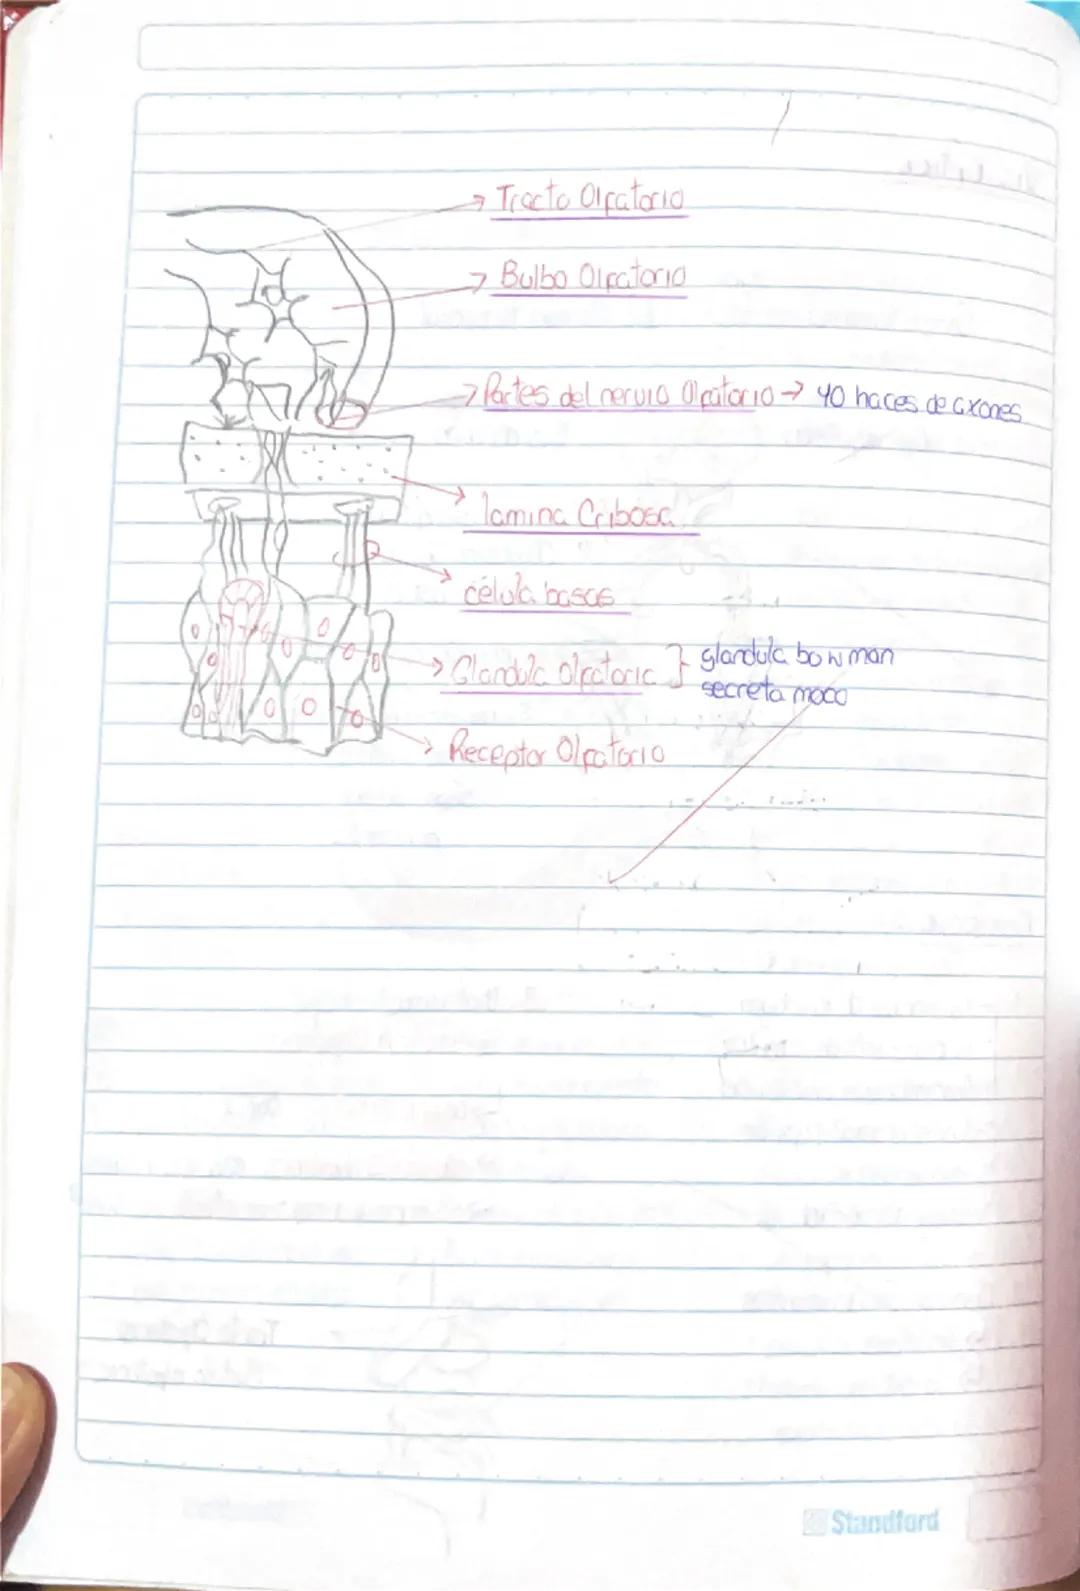 → Tracto Olfatorio
→ Bulbo Olfatorio
→ Partes del nervio Olfatorio → 40 haces de axones
→ lamina Cribosa
→ célula basas
→ Glandula olfatoria } glandula bowman
secreta moco
→ Receptor Olfatorio
Standford